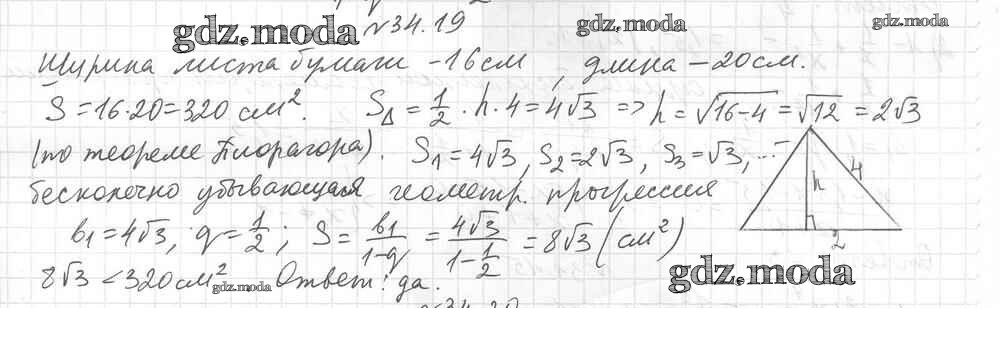 №34.19
gdz.moda
gdz.moda
gdz.moda
Ширина листа бумаги – 16 см, длина – 20 см.
S = 16·20 = 320 см². S△ = 1/2 · h · 4 = 4√3 => h = √16-4 = √12 = 2√3
(по теореме Пифагора). S1 = 4√3, S2 = 2√3, S3 = √3, ... –
бесконечно убывающая геометр. прогрессия
b1 = 4√3, q = 1/2; S = b1/1-q = 4√3/1-1/2 = 8√3 (см²)
8√3 < 320 см² Ответ: да.
h
4
2
gdz.moda
gdz.moda